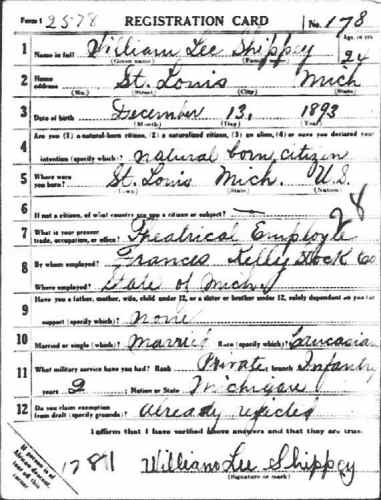 Form 1 2578 REGISTRATION CARD No. 178
1 Name in full William Lee Shippey Age, in yrs
(Given name) (Family name) 24
2 Home address St. Louis Mich
(No.) (Street) (City) (State)
3 Date of birth December 13, 1893
(Month) (Day) (Year)
Are you (1) a natural-born citizen, (2) a naturalized citizen, (3) an alien, (4) or have you declared your
4 intention (specify which)? natural born citizen
5 Where were you born? St. Louis Mich. U.S.
(Town) (State) (Nation)
6 If not a citizen, of what country are you a citizen or subject? —
7 What is your present trade, occupation, or office? Theatrical Employee 28
8 By whom employed? Frances Kelly Stock Co
Where employed? State of Mich.
9 Have you a father, mother, wife, child under 12, or a sister or brother under 12, solely dependent on you for
support (specify which)? none
10 Married or single (which)? Married Race (specify which)? Caucasian
11 What military service have you had? Rank Private; branch Infantry
years 2; Nation or State Michigan
12 Do you claim exemption from draft (specify grounds)? Already rejected
I affirm that I have verified above answers and that they are true.
William Lee Shippey
(Signature or mark)
If person is of African descent, tear off this corner